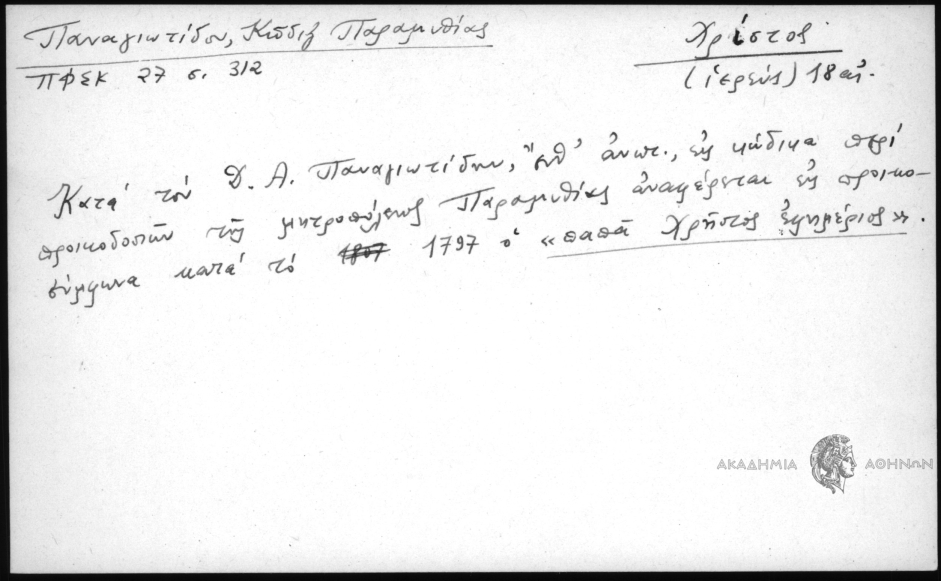 Παναγιωτίδου, Κῶδιξ Παραμυθίας
Χρίστος
ΠΦΣΚ 27 σ. 312
(ἱερεύς) 18 αἰ.
Κατά τόν Δ. Α. Παναγιωτίδην, ἔνθ' ἀνωτ., εἰς κώδικα περί
προικοδοσιῶν τῆς μητροπόλεως Παραμυθίας ἀναφέρεται εἰς προικο-
σύμφωνα κατά τό 1807 1797 ὁ «παπᾶ Χρῆστος ἐφημέριος».
ΑΚΑΔΗΜΙΑ ΑΘΗΝΩΝ